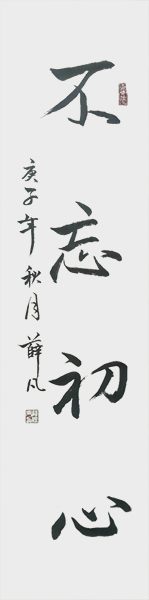 不忘初心
庚子年秋月薛凡